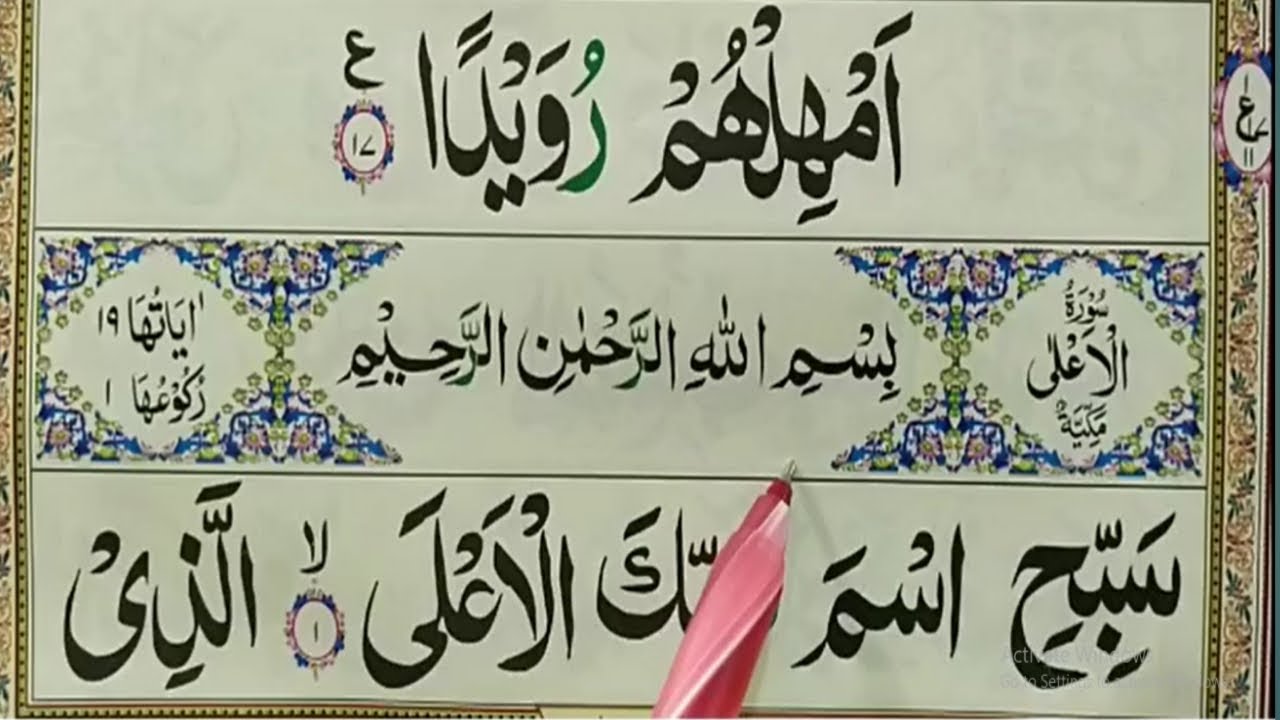 اَمْهِلْهُمْ رُوَيْدًا ١٧ ع
ع ١٧ ١١
سُوْرَةُ الْاَعْلٰى مَكِّيَّةٌ
بِسْمِ اللّٰهِ الرَّحْمٰنِ الرَّحِيْمِ
اٰيَاتُهَا ١٩
رُكُوْعُهَا ١
سَبِّحِ اسْمَ رَبِّكَ الْاَعْلَى ١ لا الَّذِىْ
Activate Windows
Go to Settings